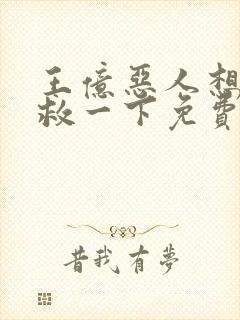 王億惡人想
救一下免費
昔我有夢